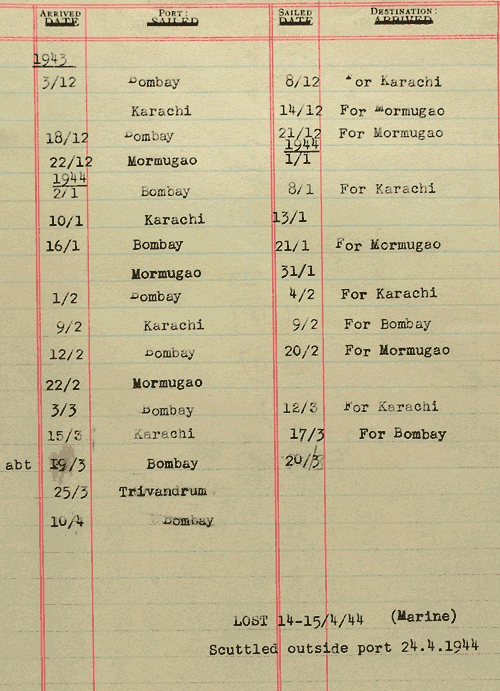 ARRIVED DATE PORT: SAILED SAILED DATE DESTINATION: ARRIVED
1943
3/12 Bombay 8/12 For Karachi
Karachi 14/12 For Mormugao
18/12 Bombay 21/12 For Mormugao
1944
22/12 Mormugao 1/1
1944
2/1 Bombay 8/1 For Karachi
10/1 Karachi 13/1
16/1 Bombay 21/1 For Mormugao
Mormugao 31/1
1/2 Bombay 4/2 For Karachi
9/2 Karachi 9/2 For Bombay
12/2 Bombay 20/2 For Mormugao
22/2 Mormugao
3/3 Bombay 12/3 For Karachi
15/3 Karachi 17/3 For Bombay
abt 19/3 Bombay 20/3
25/3 Trivandrum
10/4 Bombay
LOST 14-15/4/44 (Marine)
Scuttled outside port 24.4.1944